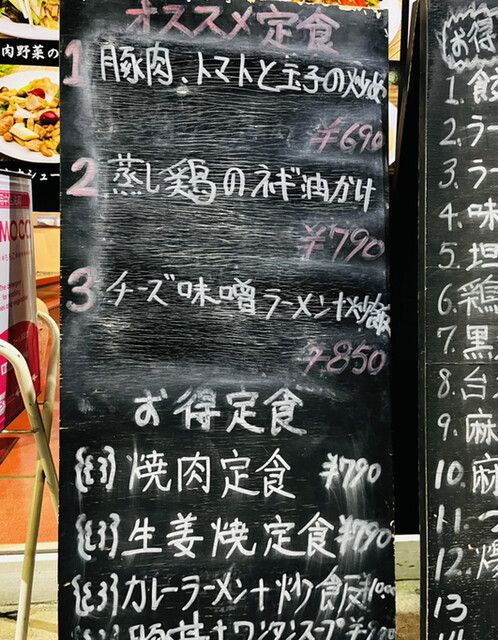 オススメ定食
1 豚肉、トマトと玉子の炒め
¥690
2 蒸し鶏のネギ油かけ
¥790
3 チーズ味噌ラーメン+炒飯
¥850
お得定食
焼肉定食 ¥790
生姜焼定食 ¥790
カレーラーメン+炒飯
豚丼+ワンタンスープ
肉野菜の
MOCO
お得
1.
2. ラー
3. ラー
4. 味
5. 坦
6. 鶏
7. 黒
8. 台
9. 麻
10. 麻
11. 一
12.
13